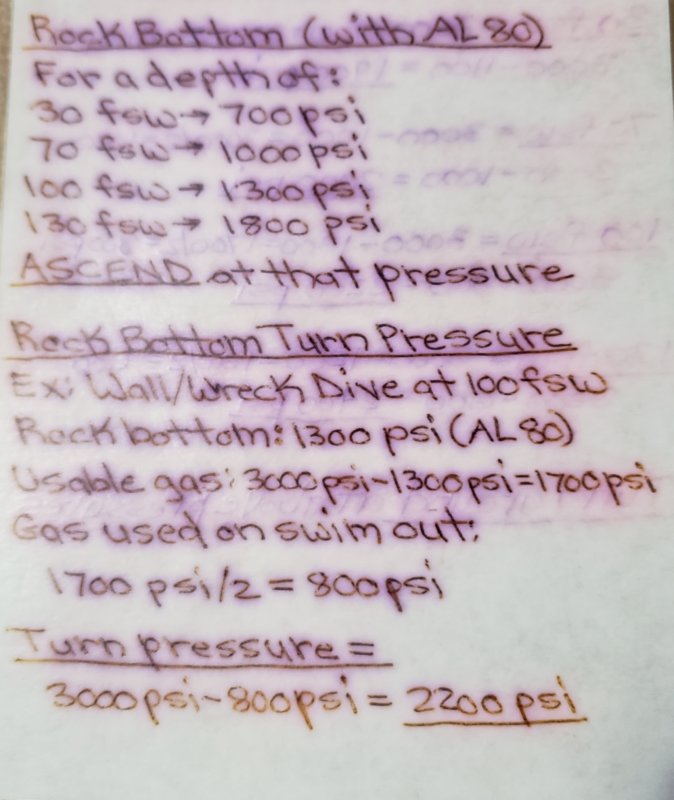 Rock Bottom (with AL 80)
For a depth of:
30 fsw → 700 psi
70 fsw → 1000 psi
100 fsw → 1300 psi
130 fsw → 1800 psi
ASCEND at that pressure
Rock Bottom Turn Pressure
Ex: Wall/Wreck Dive at 100 fsw
Rock bottom: 1300 psi (AL 80)
Usable gas: 3000 psi-1300 psi=1700 psi
Gas used on swim out:
1700 psi/2 = 800 psi
Turn pressure =
3000 psi-800 psi = 2200 psi